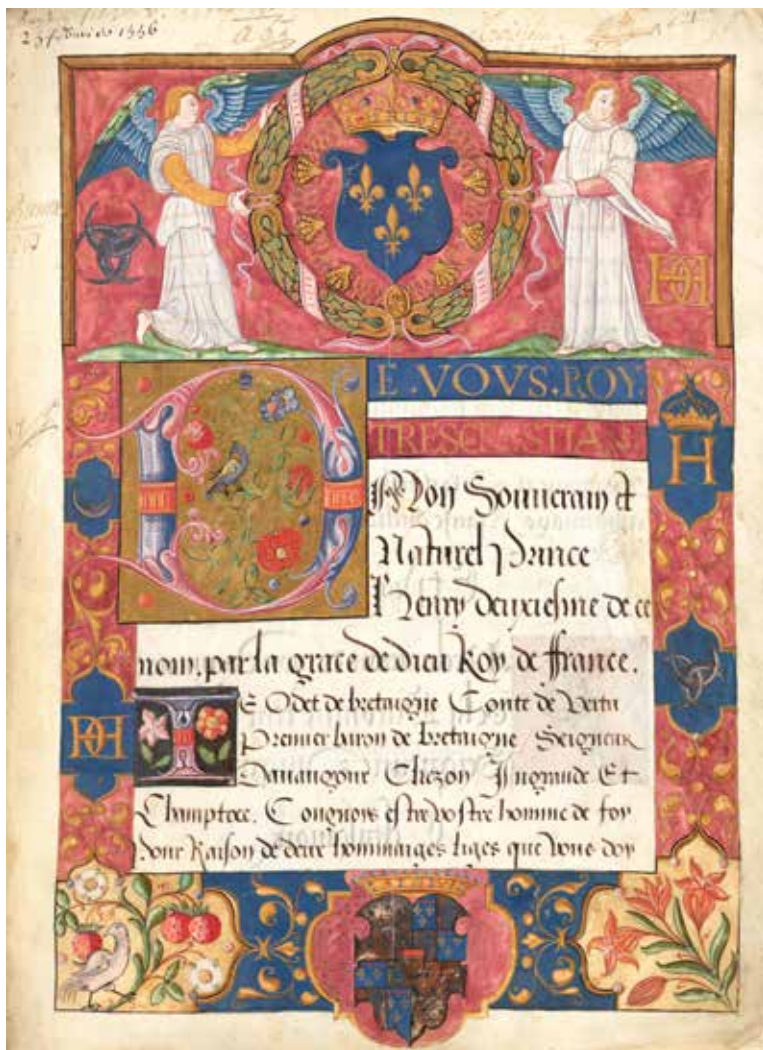 1556
DE . VOVS . ROY.
TRES
Mon Souuerain et
Naturel Prince
Henry deuxiesme de ce
nom, par la grace de dieu Roy de ffrance.
IE Odet de bretaigne Conte de Vertu
Premier baron de bretaigne Seigneur
Dauaugour Clisson Ingrande Et
Champtoce. Congnois estre vostre homme de foy
Pour Raison de deux hommaiges liges que vous doy
H